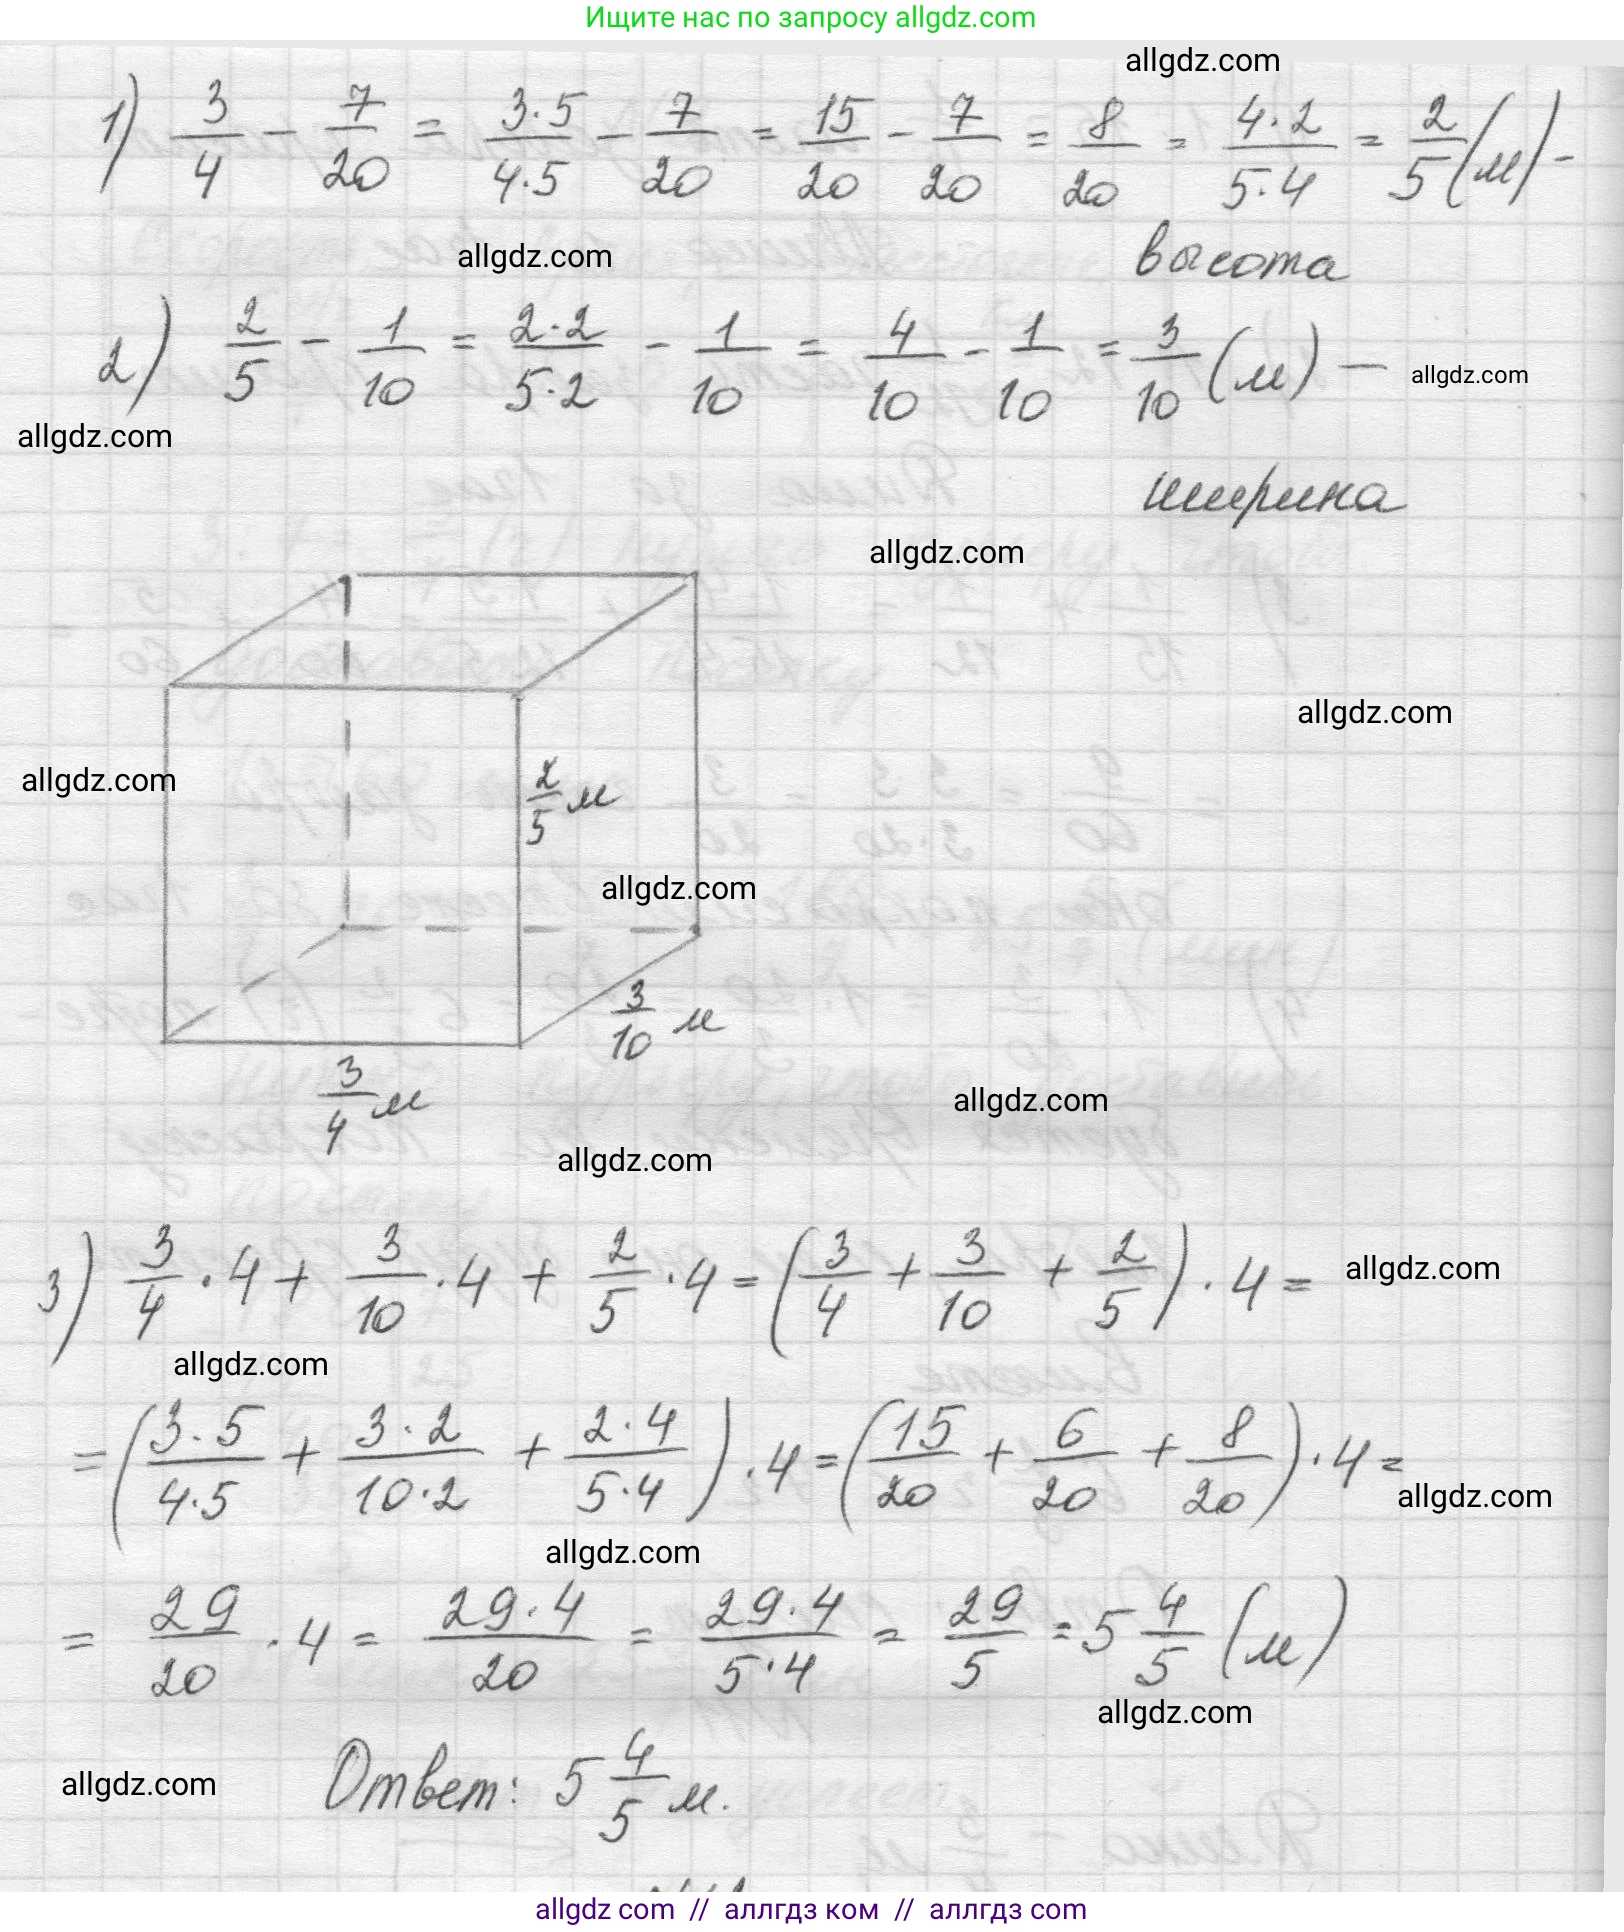 Ищите нас по запросу allgdz.com
allgdz.com
1) 3/4 - 7/20 = 3·5/4·5 - 7/20 = 15/20 - 7/20 = 8/20 = 4·2/5·4 = 2/5 (м) -
высота
allgdz.com
2) 2/5 - 1/10 = 2·2/5·2 - 1/10 = 4/10 - 1/10 = 3/10 (м) -
allgdz.com
allgdz.com
ширина
allgdz.com
allgdz.com
allgdz.com
2/5 м
allgdz.com
3/10 м
3/4 м
allgdz.com
allgdz.com
3) 3/4 · 4 + 3/10 · 4 + 2/5 · 4 = (3/4 + 3/10 + 2/5) · 4 =
allgdz.com
allgdz.com
= (3·5/4·5 + 3·2/10·2 + 2·4/5·4) · 4 = (15/20 + 6/20 + 8/20) · 4 =
allgdz.com
allgdz.com
= 29/20 · 4 = 29·4/20 = 29·4/5·4 = 29/5 = 5 4/5 (м)
allgdz.com
Ответ: 5 4/5 м.
allgdz.com
allgdz com // аллгдз ком // allgdz com